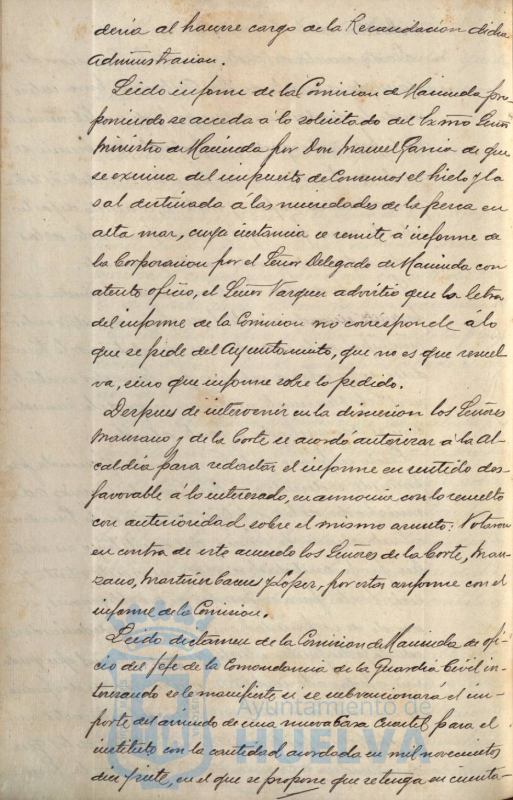 deria al hacerse cargo de la Recaudacion dicha
Administracion.
Leido informe de la Comision de Hacienda pro-
poniendo se acceda á lo solicitado del Exmo Señor
Ministro de Hacienda por Don Manuel Garcia de que
se exima del impuesto de Consumos el hielo y la
sal destinada á las necesidades de la pesca en
alta mar, cuya instancia se remite á informe de
la Corporacion por el Señor Delegado de Hacienda con
atento oficio, el Señor Vazquez advirtió que la letra
del informe de la Comision no corresponde á lo
que se pide del Ayuntamiento, que no es que resuel-
va, sino que informe sobre lo pedido.
Despues de intervenir en la discusion los Señores
Manzano y de la Corte se acordó autorizar á la Al-
caldía para redactar el informe en sentido des-
favorable á lo interesado, en armonia con lo resuelto
con anterioridad sobre el mismo asunto: Votaron
en contra de este acuerdo los Señores de la Corte, Man-
zano, Martinez y Lopez, por estar conforme con el
informe de la Comision.
Leido dictamen de la Comision de Hacienda de ofi-
cio del Jefe de la Comandancia de la Guardia Civil in-
teresando se le manifieste si se subvencionará el im-
porte del arriendo de una nueva Casa Cuartel para el
instituto con la cantidad acordada en mil novecientos
diez y siete, en el que se propone que se tenga en cuenta-
Ayuntamiento de
HUELVA